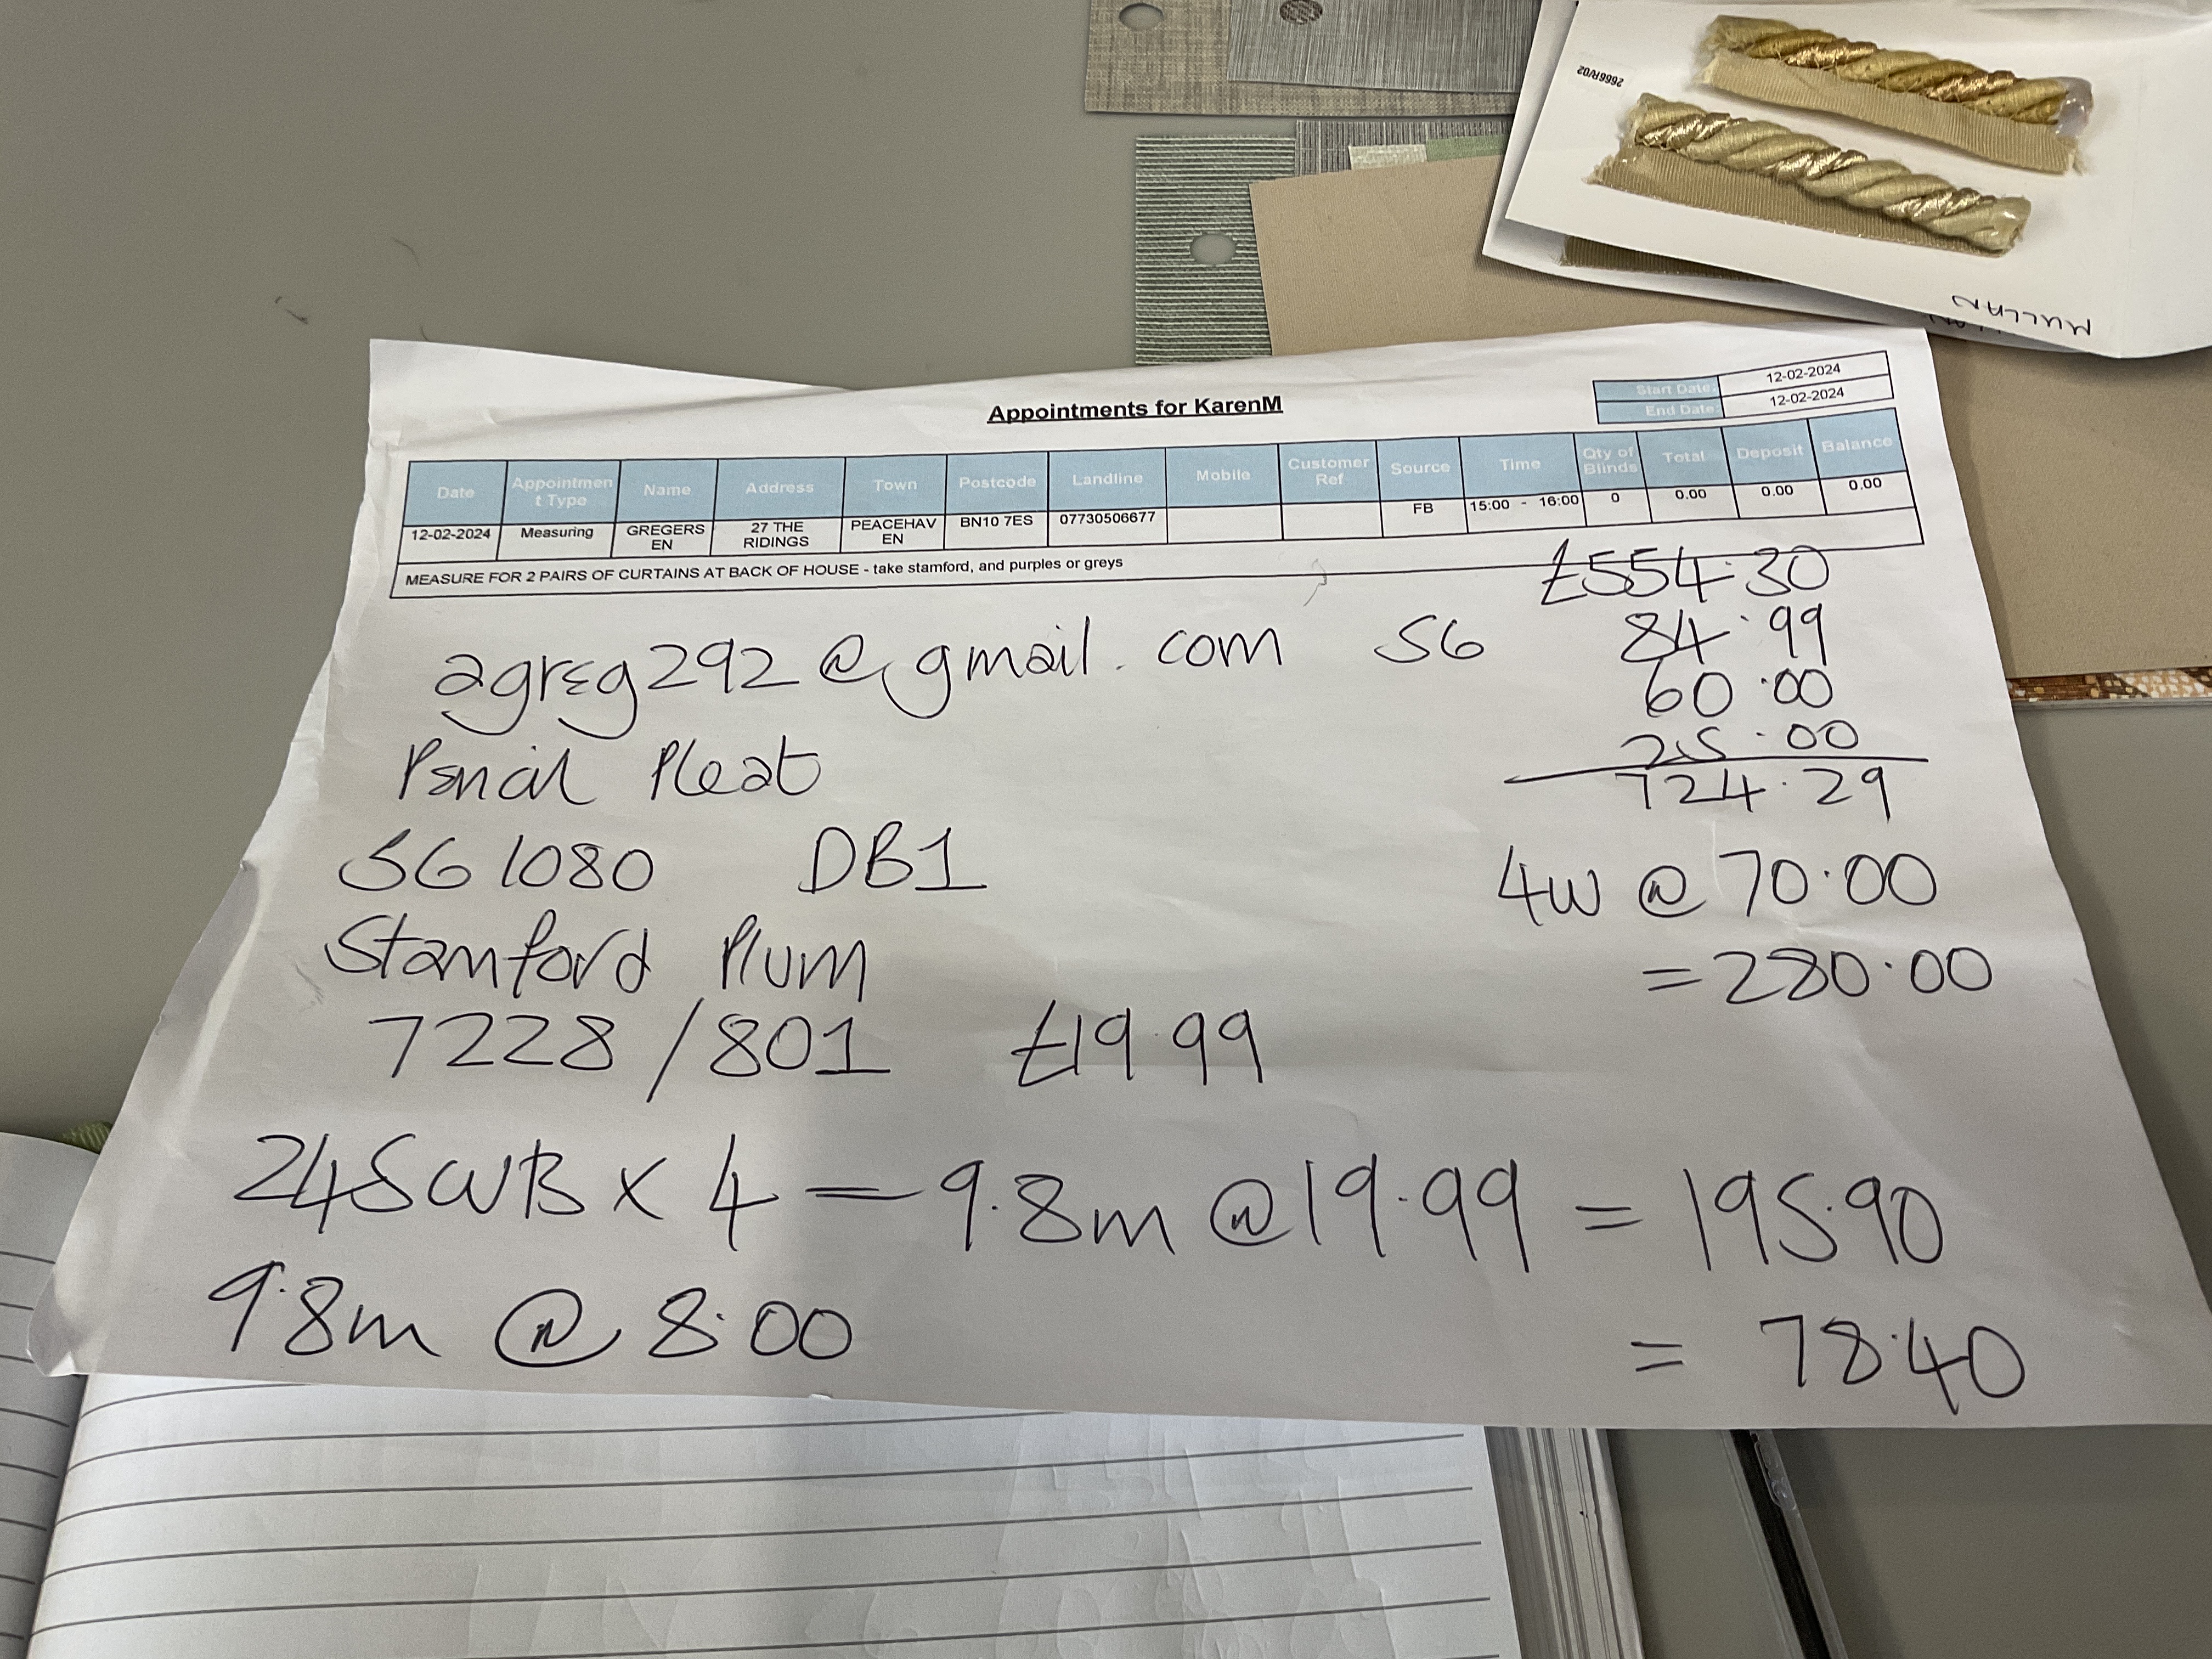 2666R/02
MULLAN
Appointments for KarenM
Start Date: 12-02-2024
End Date: 12-02-2024
Date Appointmen t Type Name Address Town Postcode Landline Mobile Customer Ref Source Time Qty of Blinds Total Deposit Balance
12-02-2024 Measuring GREGERS EN 27 THE RIDINGS PEACEHAV EN BN10 7ES 07730506677 FB 15:00 - 16:00 0 0.00 0.00 0.00
MEASURE FOR 2 PAIRS OF CURTAINS AT BACK OF HOUSE - take stamford, and purples or greys
£554.30
agreg292@gmail.com S6 84.99
60.00
25.00
Pencil Pleat 724.29
S61080 DB1 4W @ 70.00
Stamford Plum = 280.00
7228/801 £19.99
245 WB x 4 = 9.8m @ 19.99 = 195.90
9.8m @ 8.00 = 78.40